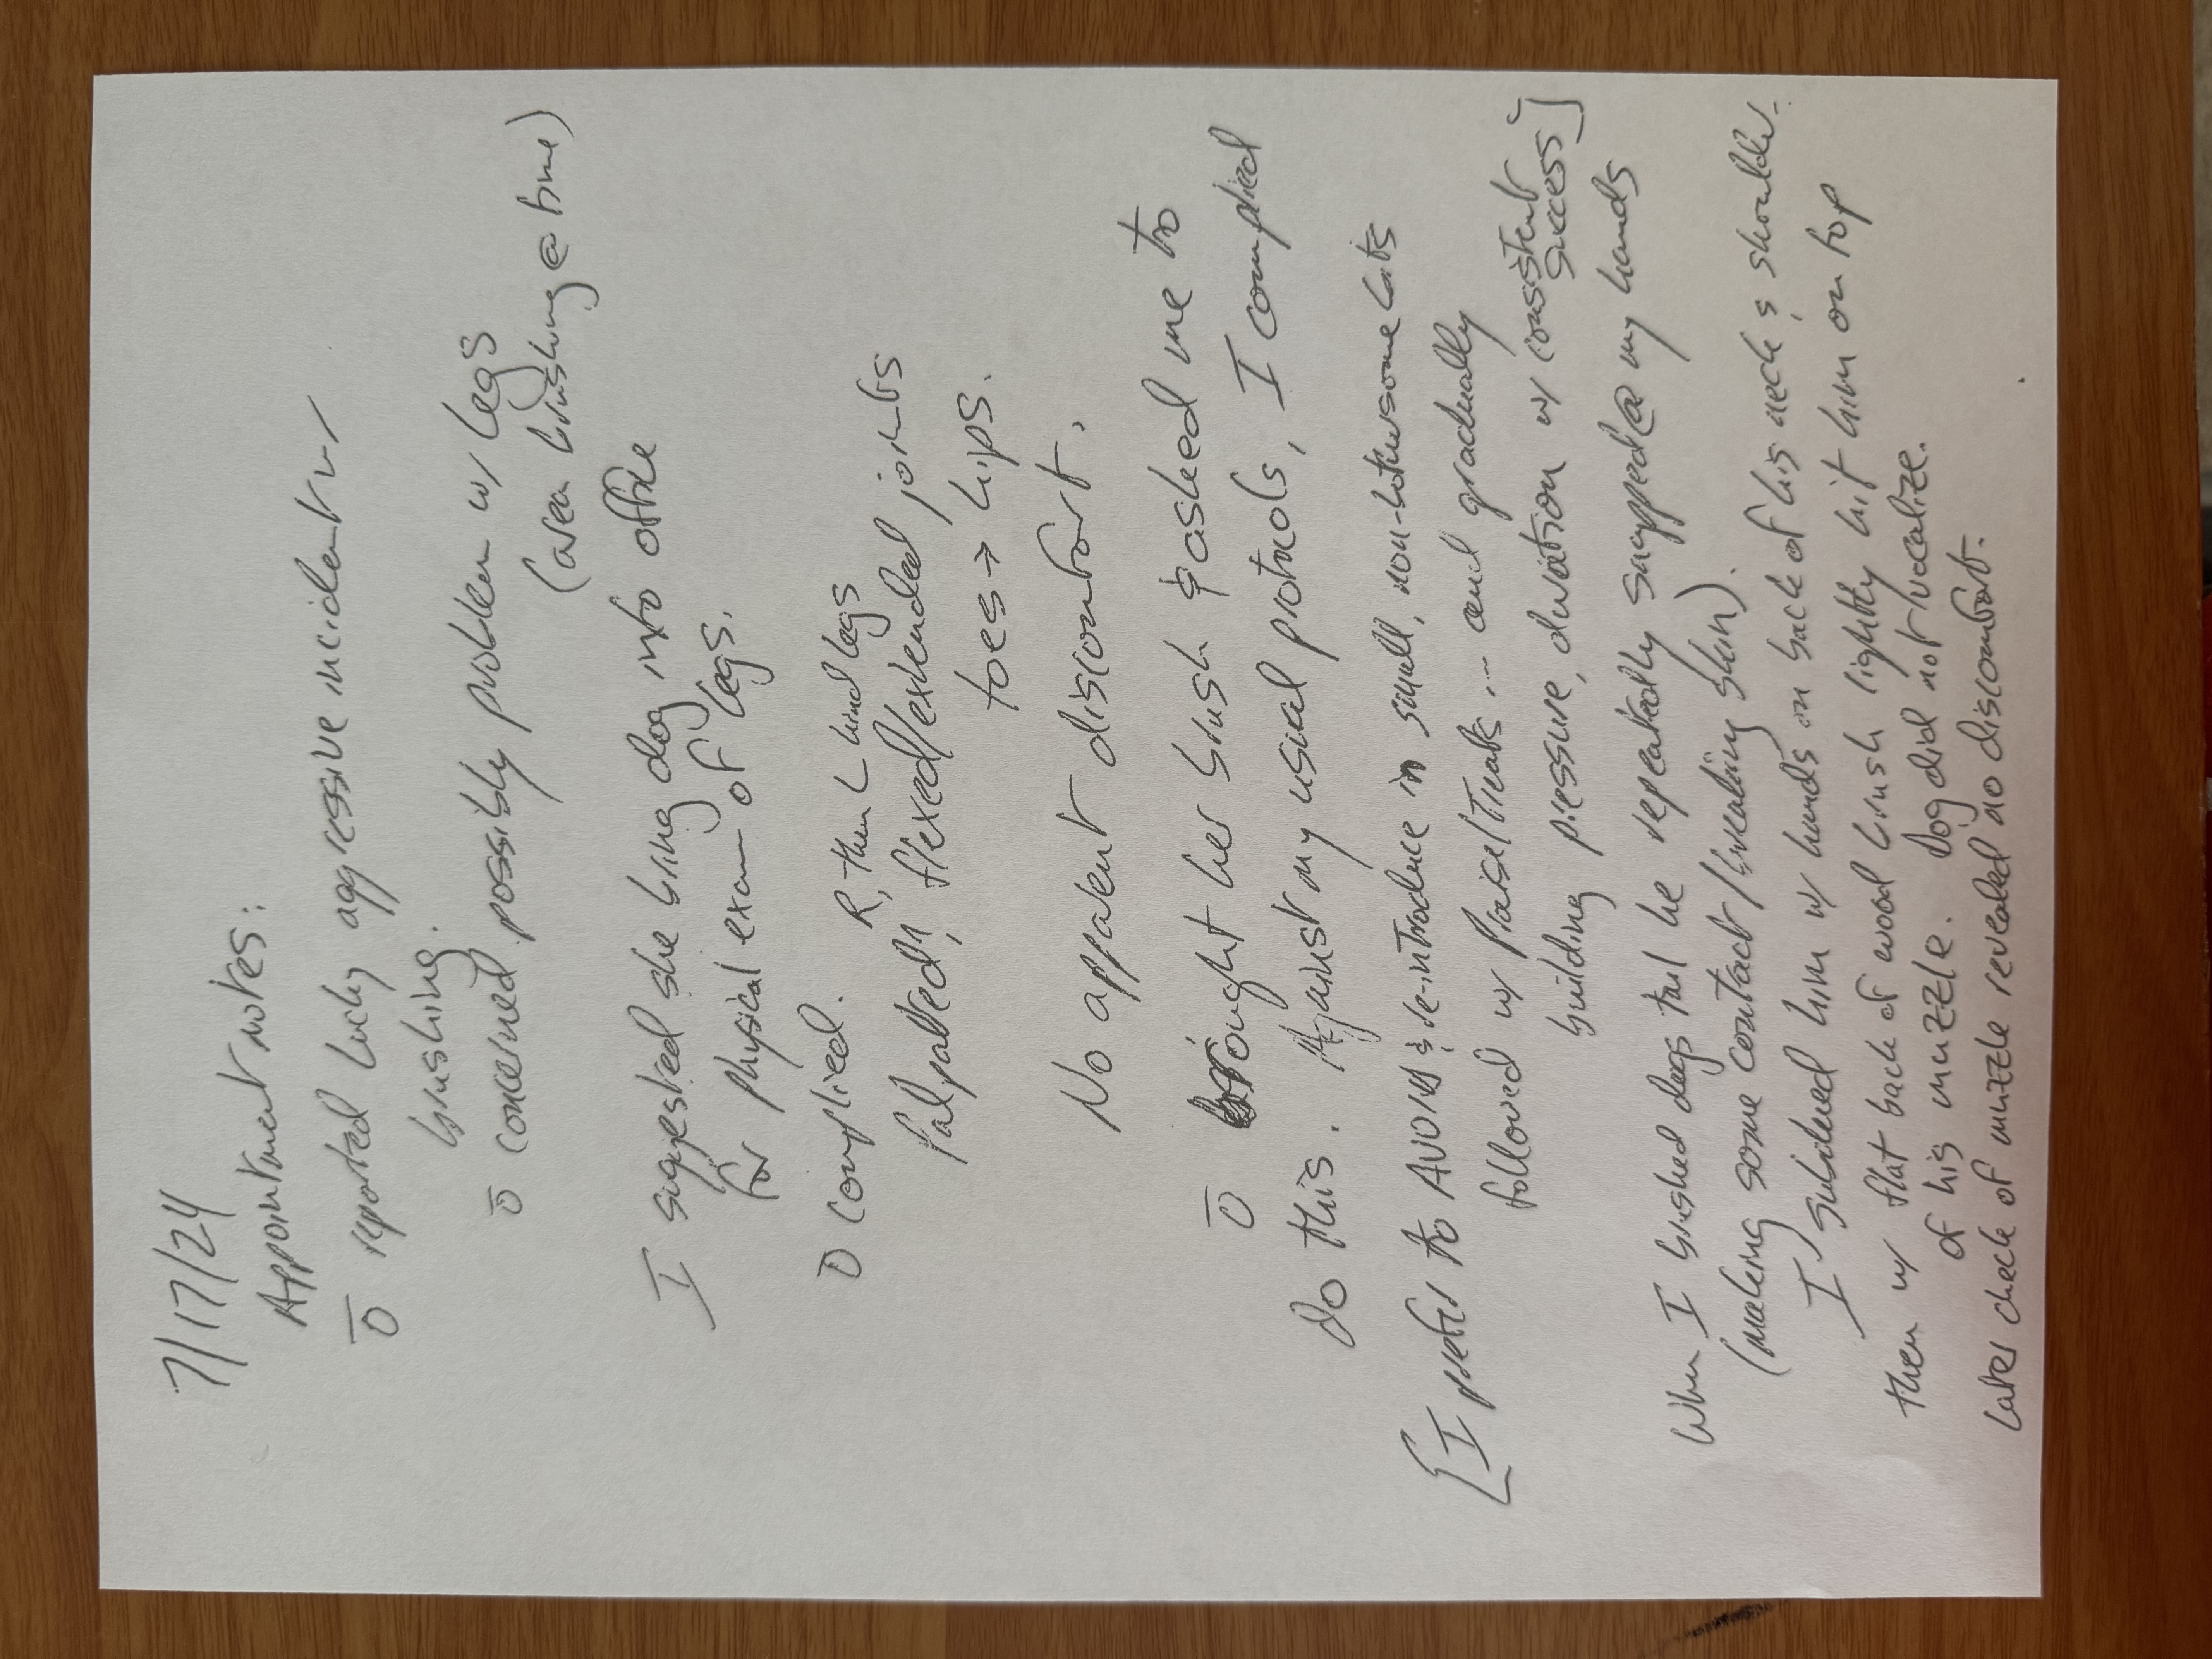 7/17/24
Appointment notes:
Ō reported Lucky aggressive incident w/
brushing.
ō concerned possibly problem w/ legs
(area brushing @ time)
I suggested she bring dog into office
for physical exam of legs.
Ō complied. R, then L hind legs
Palpated, flexed/extended joints
toes → hips.
No apparent discomfort.
Ō brought her brush & asked me to
do this. Against my usual protocols, I complied
[I prefer to AVOID & re-introduce in small, non-bothersome bits
followed w/ Praise/Treats... and gradually
building pressure, duration w/ consistent
success]
When I brushed dogs tail he repeatedly snapped @ my hands
(making some contact/breaking skin).
I subdued him w/ hands on back of his neck & shoulder.
then w/ flat back of wood brush lightly hit him on top
of his muzzle. Dog did not vocalize.
Later check of muzzle revealed no discomfort.